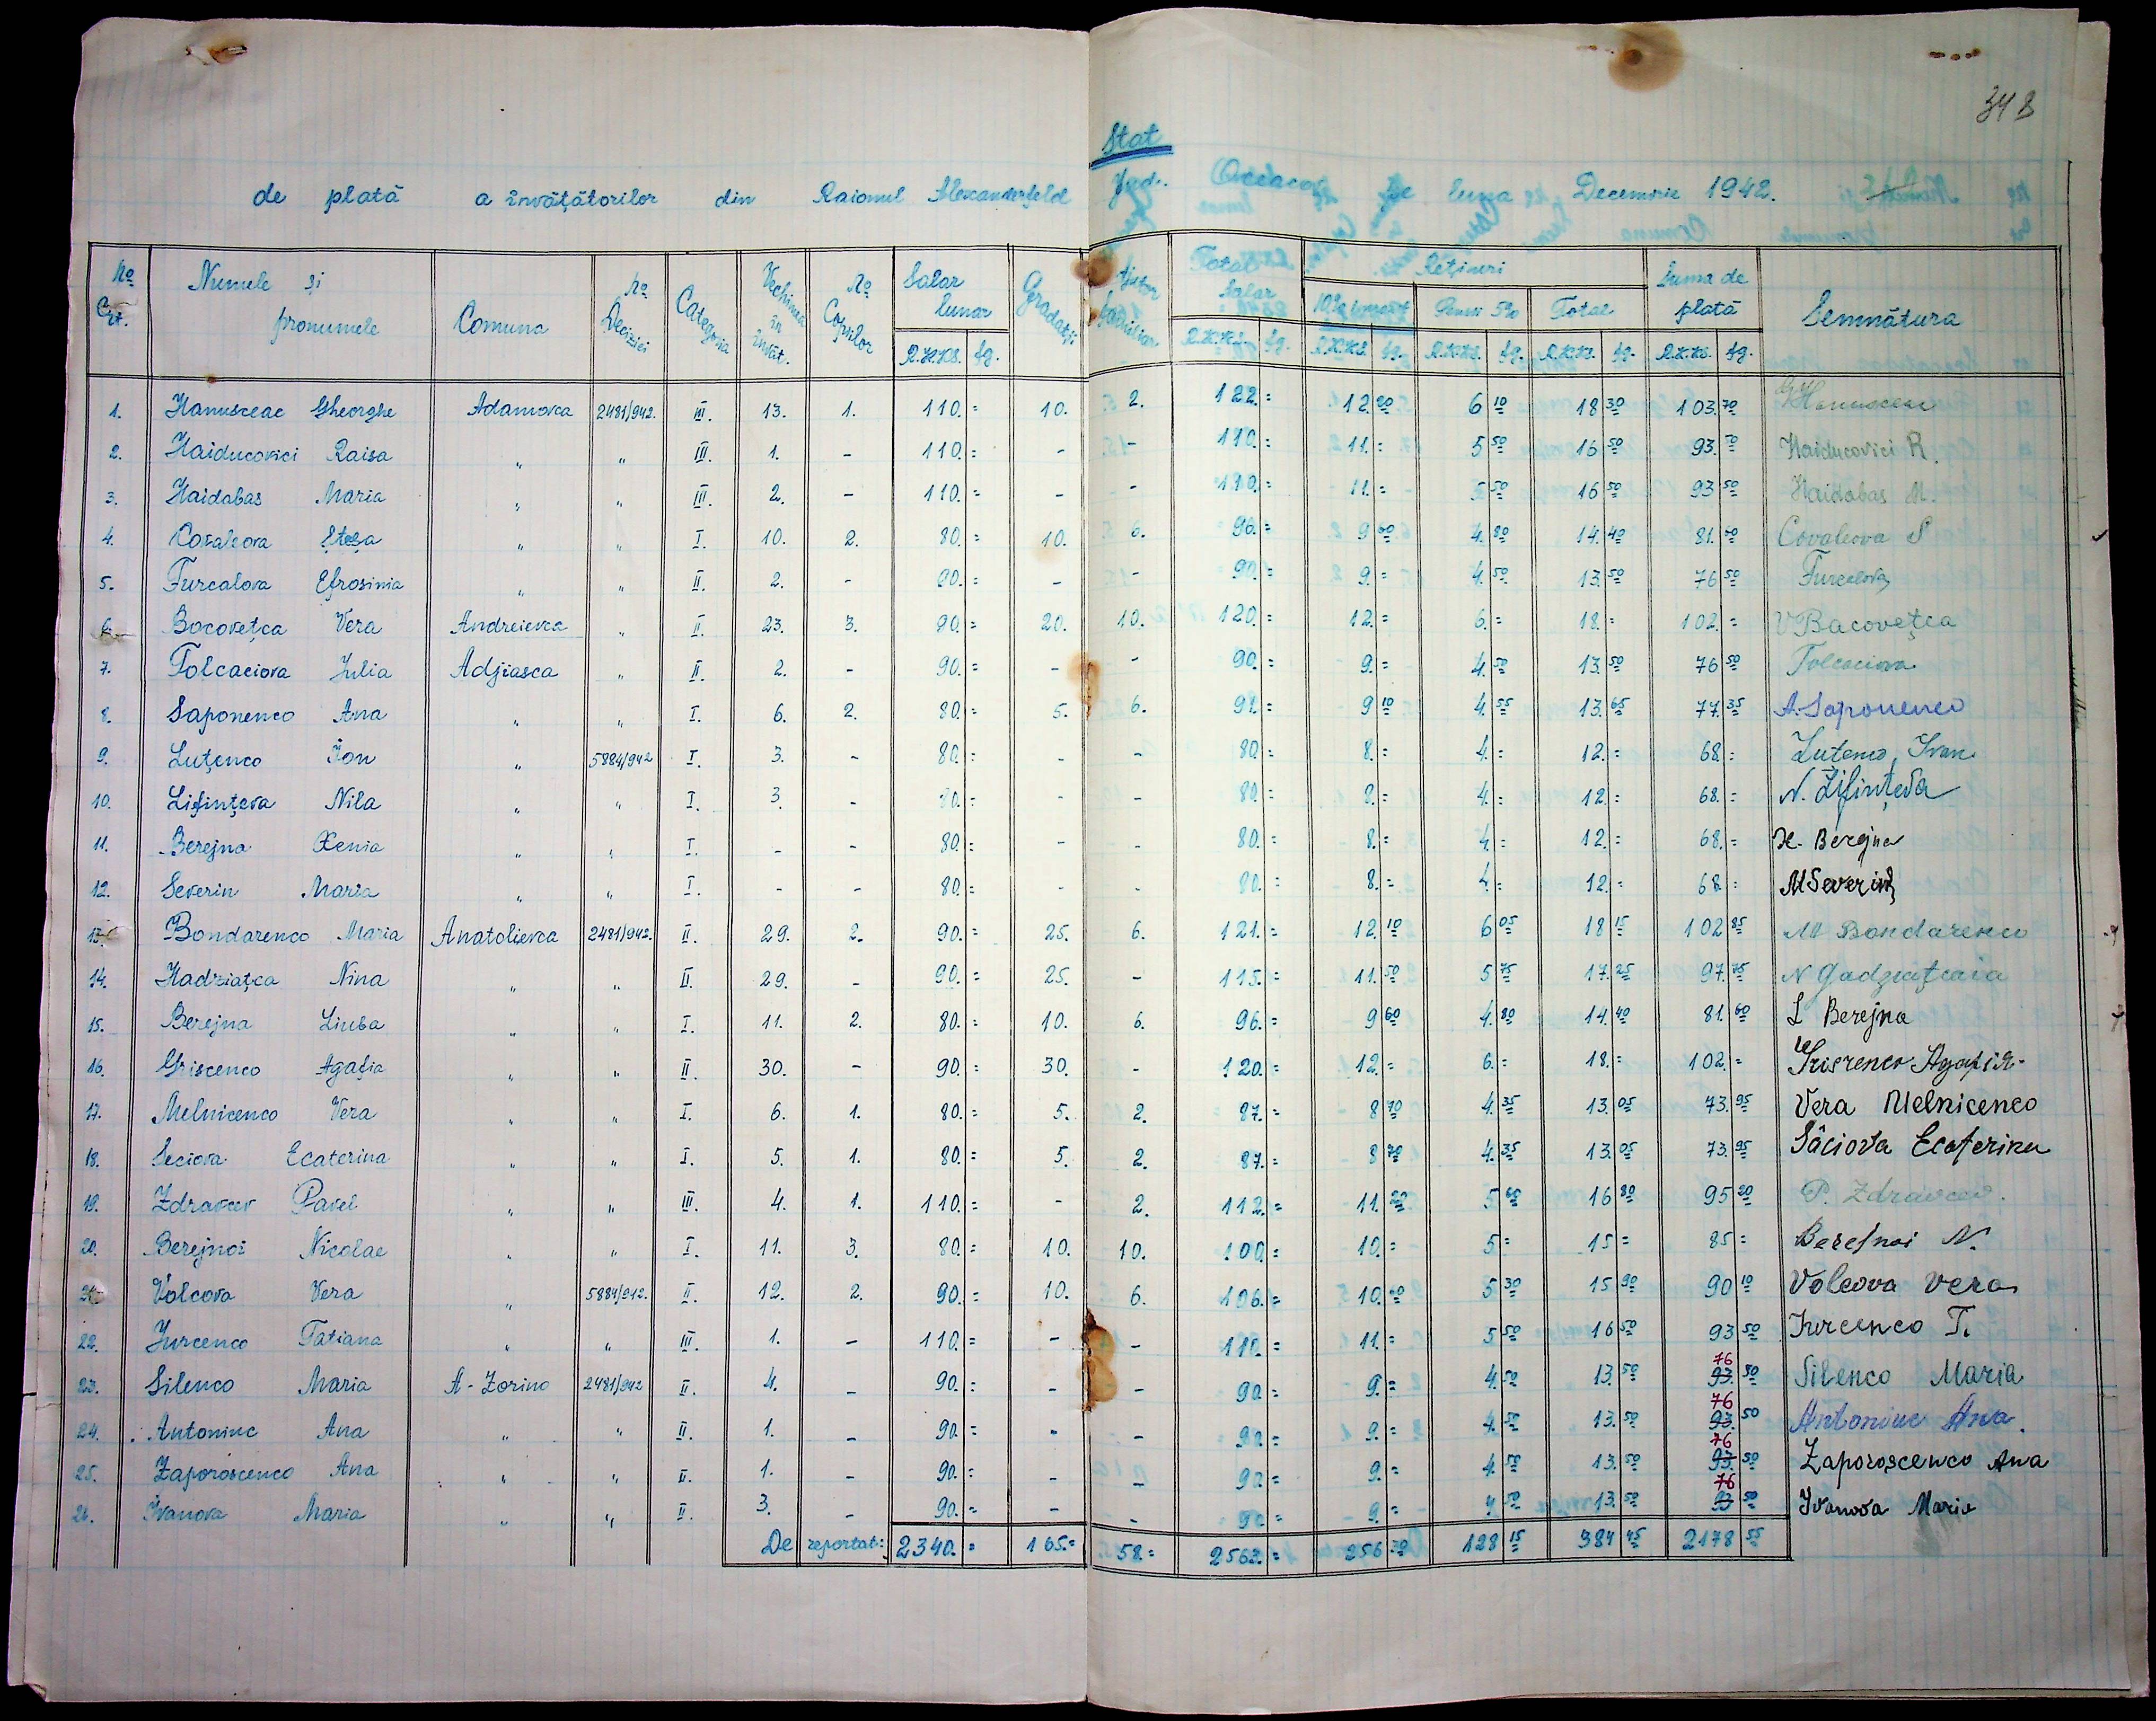 348
Stat
de plată a învățătorilor din Raionul Alexanderfeld Jud. Oceacov pe luna Decembrie 1942.
No Crt. Numele și pronumele Comuna No Deciziei Categoria Vechimea în învăț. No Copiilor Salar lunar R.K.K.S. fg. Gradații Ajutor familiar Total Salar R.K.K.S. fg. Rețineri 10% impozit R.K.K.S. fg. Pensii 5% R.K.K.S. fg. Total R.K.K.S. fg. Suma de plată R.K.K.S. fg. Semnătura
1. Hanusceac Gheorghe Adamovca 2481/942. III. 13. 1. 110.= 10. 2. 122.= 12.20 6 10 18 30 103.70 G Hanusceac
2. Haiducovici Raisa " " III. 1. - 110.= - - 110.= 11.= 5 50 16 50 93.50 Haiducovici R.
3. Haidabas Maria " " III. 2. - 110.= - - 110.= 11.= 5 50 16 50 93 50 Haidabas M.
4. Covaleova Ștesa " " I. 10. 2. 80.= 10. 6. 96.= 9 60 4.80 14.40 81.60 Covaleova S
5. Furcalova Efrosinia " " II. 2. - 90.= - - 90.= 9.= 4.50 13.50 76 50 Furcalova
6. Bocovețca Vera Andreievca " II. 23. 3. 90.= 20. 10. 120.= 12.= 6.= 18.= 102.= V Bacovețca
7. Tolcaciova Julia Adjiasca " II. 2. - 90.= - - 90.= 9.= 4.50 13.50 76 50 Tolcaciova
8. Saponenco Ana " " I. 6. 2. 80.= 5. 6. 91.= 9 10 4.55 13.65 77.35 A. Saponenco
9. Luțenco Ion " 5884/942 I. 3. - 80.= - - 80.= 8.= 4.= 12.= 68.= Luțenco Ivan
10. Lifințeva Nila " " I. 3. - 80.= - - 80.= 8.= 4.= 12.= 68.= N. Lifințeva
11. Berejna Xenia " " I. - - 80.= - - 80.= 8.= 4.= 12.= 68.= X. Berejna
12. Severin Maria " " I. - - 80.= - - 80.= 8.= 4.= 12.= 68.= M Severin
13. Bondarenco Maria Anatolievca 2481/942. II. 29. 2. 90.= 25. 6. 121.= 12.10 6 05 18 15 102 85 M Bondarenco
14. Hadziațca Nina " " II. 29. - 90.= 25. - 115.= 11.50 5 75 17.25 97.75 N Gadziațcaia
15. Berejna Liuba " " I. 11. 2. 80.= 10. 6. 96.= 9 60 4.80 14.40 81.60 L Berejna
16. Griscenco Agafia " " II. 30. - 90.= 30. - 120.= 12.= 6.= 18.= 102.= Griscenco Agafia
17. Melnicenco Vera " " I. 6. 1. 80.= 5. 2. 87.= 8 70 4.35 13.05 73.95 Vera Melnicenco
18. Seciova Ecaterina " " I. 5. 1. 80.= 5. 2. 87.= 8 70 4.35 13.05 73.95 Sâciova Ecaterina
19. Zdravcev Pavel " " III. 4. 1. 110.= - 2. 112.= 11.20 5 60 16 80 95 20 P. Zdravcev.
20. Berejnoi Nicolae " " I. 11. 3. 80.= 10. 10. 100.= 10.= 5= 15= 85= Berejnoi N.
21. Volcova Vera " 5884/942. II. 12. 2. 90.= 10. 6. 106.= 10.60 5 30 15 90 90 10 Volcova Vera
22. Jurcenco Tatiana " " III. 1. - 110.= - - 110.= 11.= 5 50 16 50 93 50 Jurcenco T.
23. Silenco Maria A-Zorino 2481/942 II. 4. - 90.= - - 90.= 9.= 4.50 13.50 76 93.50 Silenco Maria
24. Antoniuc Ana " " II. 1. - 90.= - - 90.= 9.= 4.50 13.50 76 93.50 Antoniuc Ana.
25. Zaporoscenco Ana " " II. 1. - 90.= - - 90.= 9.= 4.50 13.50 76 93.50 Zaporoscenco Ana
26. Ivanova Maria " " II. 3. - 90.= - - 90.= 9.= 4 50 13.50 76 93 50 Ivanova Maria
De reportat: 2340.= 165.= 58.= 2563.= 256.30 128 15 384 45 2178 55